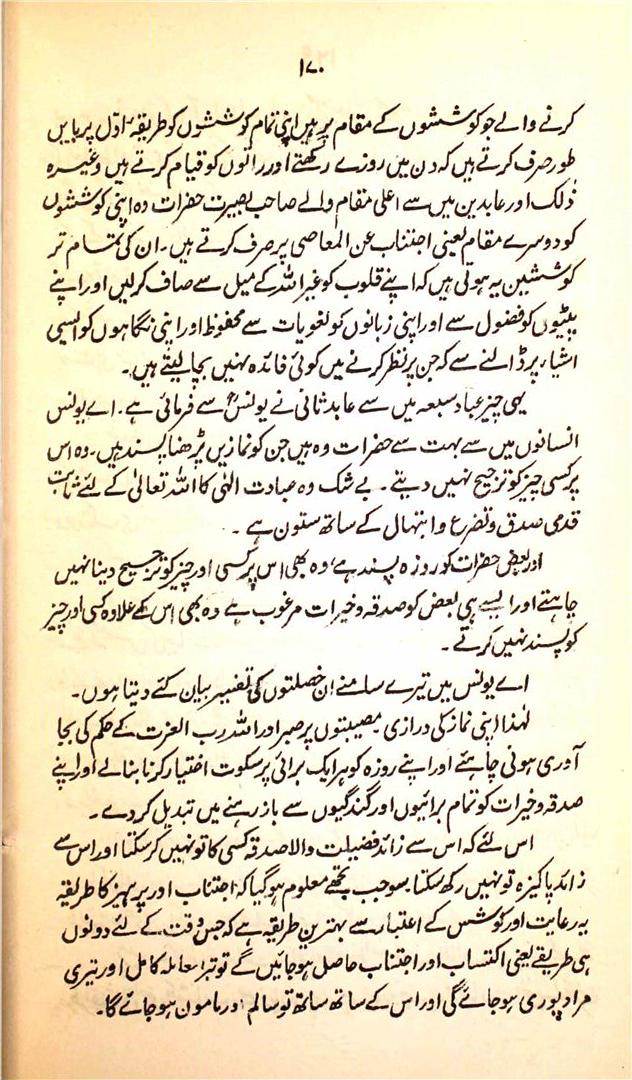 ۱۷۰
کرنے والے جو کوششوں کے مقام پر ہیں اپنی تمام کوششوں کو طریقہ اوّل پر بایں
طور صرف کرتے ہیں کہ دن میں روزے رکھتے اور راتوں کو قیام کرتے ہیں وغیرہ
ذٰلک اور عابدین میں سے اعلیٰ مقام والے صاحب بصیرت حضرات وہ اپنی کوششوں
کو دوسرے مقام یعنی اجتناب عن المعاصی پر صرف کرتے ہیں۔ ان کی تمام تر
کوششیں یہ ہوتی ہیں کہ اپنے قلوب کو غیر اللہ کے میل سے صاف کرلیں اور اپنے
پیٹوں کو فضول سے اور اپنی زبانوں کو لغویات سے محفوظ اور اپنی نگاہوں کو ایسی
اشیاء پر ڈالنے سے کہ جن پر نظر کرنے میں کوئی فائدہ نہیں بچا لیتے ہیں۔
یہی چیز عباد سبعہ میں سے عابد ثانی نے یونسؑ سے فرمائی ہے۔ اے یونس
انسانوں میں سے بہت سے حضرات وہ ہیں جن کو نمازیں پڑھنا پسند ہیں۔ وہ اس
پر کسی چیز کو ترجیح نہیں دیتے۔ بے شک وہ عبادت الٰہی کا اللہ تعالیٰ کے لئے ثابت
قدمی صدق و تضرع و ابتہال کے ساتھ ستون ہے۔
اور بعض حضرات کو روزہ پسند ہے، وہ بھی اس پر کسی اور چیز کو ترجیح دینا نہیں
چاہتے اور ایسے ہی بعض کو صدقہ و خیرات مرغوب ہے وہ بھی اس کے علاوہ کسی اور چیز
کو پسند نہیں کرتے۔
اے یونس میں تیرے سامنے ان خصلتوں کی تفسیر بیان کئے دیتا ہوں۔
لہٰذا اپنی نماز کی درازی مصیبتوں پر صبر اور اللہ رب العزت کے حکم کی بجا
آوری ہونی چاہئے اور اپنے روزہ کو ہر ایک برائی پر سکوت اختیار کرنا بنالے اور اپنے
صدقہ و خیرات کو تمام برائیوں اور گندگیوں سے باز رہنے میں تبدیل کر دے۔
اس لئے کہ اس سے زائد فضیلت والا صدقہ کسی کا تو نہیں کر سکتا اور اس سے
زائد پاکیزہ تو نہیں رکھ سکتا، سو جب تجھے معلوم ہو گیا کہ اجتناب اور پرہیز کا طریقہ
یہ رعایت اور کوشش کے اعتبار سے بہترین طریقہ ہے کہ جس وقت کے لئے دونوں
ہی طریقے یعنی اکتساب اور اجتناب حاصل ہو جائیں گے تو تیرا معاملہ کامل اور تیری
مراد پوری ہو جائے گی اور اس کے ساتھ ساتھ تو سالم اور مامون ہو جائے گا۔